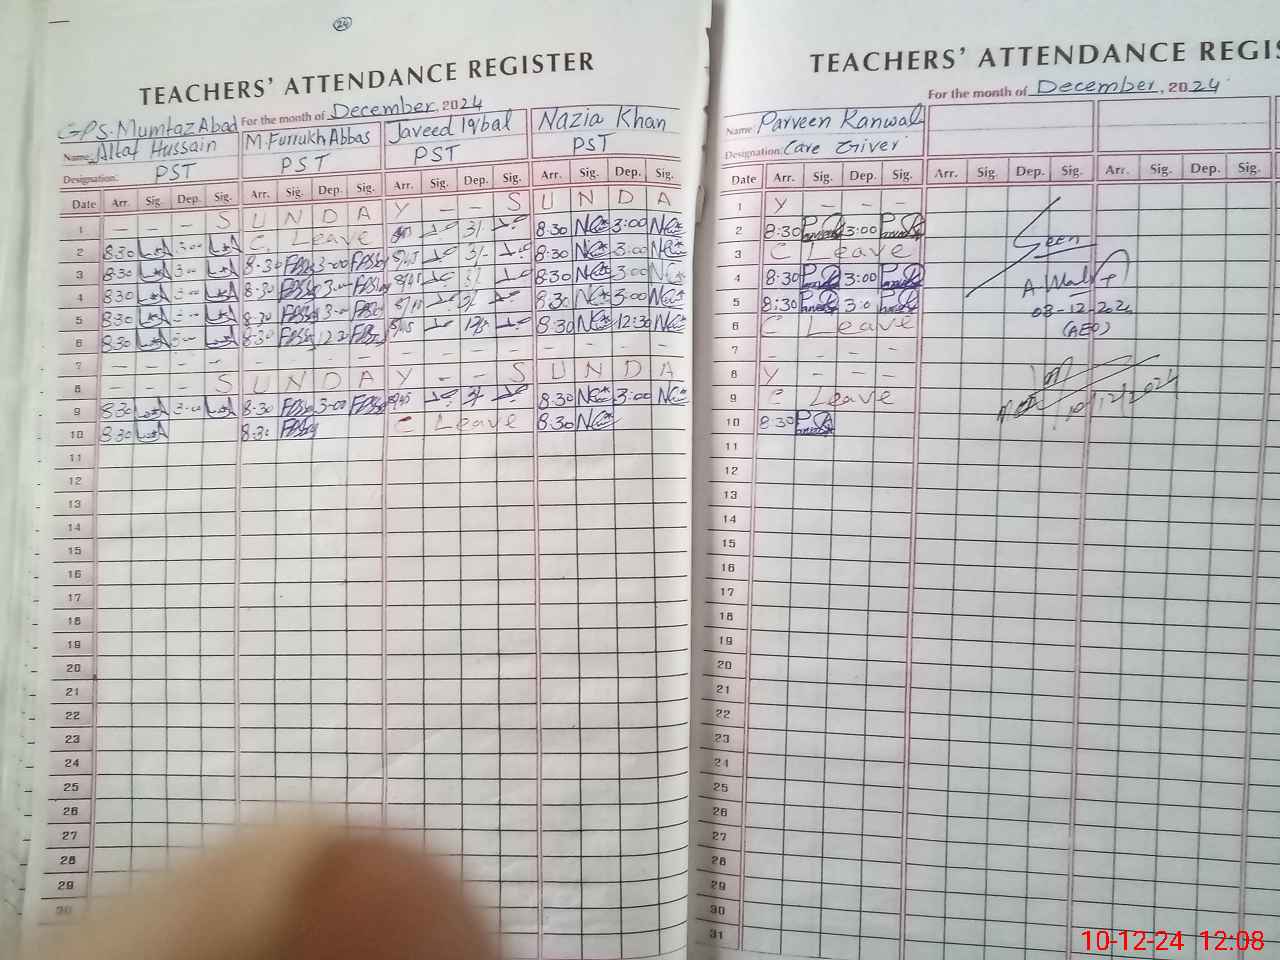 24
TEACHERS' ATTENDANCE REGISTER
For the month of December, 2024
GPS-MumtazAbad
Name: Altaf Hussain M. Furrukh Abbas Javeed Iqbal Nazia Khan
Designation: PST PST PST PST
Date Arr. Sig. Dep. Sig. Arr. Sig. Dep. Sig. Arr. Sig. Dep. Sig. Arr. Sig. Dep. Sig.
1 - - - S U N D A Y - - S U N D A
2 8:30 3:00 C. Leave 3/- 8:30 3:00
3 8:30 3:00 8:30 3:00 8/45 3/- 8:30 3:00
4 8:30 3:00 8:30 3:00 8/45 8:30 3:00
5 8:30 3:00 8:30 3:00 8:30 3:00
6 8:30 8:30 8/45 8:30 12:30
7 - - - - - - - - - - - - - - - -
8 - - - S U N D A Y - - S U N D A
9 8:30 3:00 8:30 3:00 8/45 3/- 8:30 3:00
10 8:30 8:30 C Leave 8:30
11
12
13
14
15
16
17
18
19
20
21
22
23
24
25
26
27
28
29
30
TEACHERS' ATTENDANCE REGIS
For the month of December, 2024
Name: Parveen Kanwal
Designation: Care Giver
Date Arr. Sig. Dep. Sig. Arr. Sig. Dep. Sig. Arr. Sig. Dep. Sig.
1 Y - - -
2 8:30 3:00
3 C Leave
Seen
4 8:30 3:00
5 8:30 3:0
03-12-2024
6 C Leave
(AEO)
7 - - - -
8 Y - - -
9 C Leave
10/12/2024
10 8:30
11
12
13
14
15
16
17
18
19
20
21
22
23
24
25
26
27
28
29
30
31
10-12-24 12:08